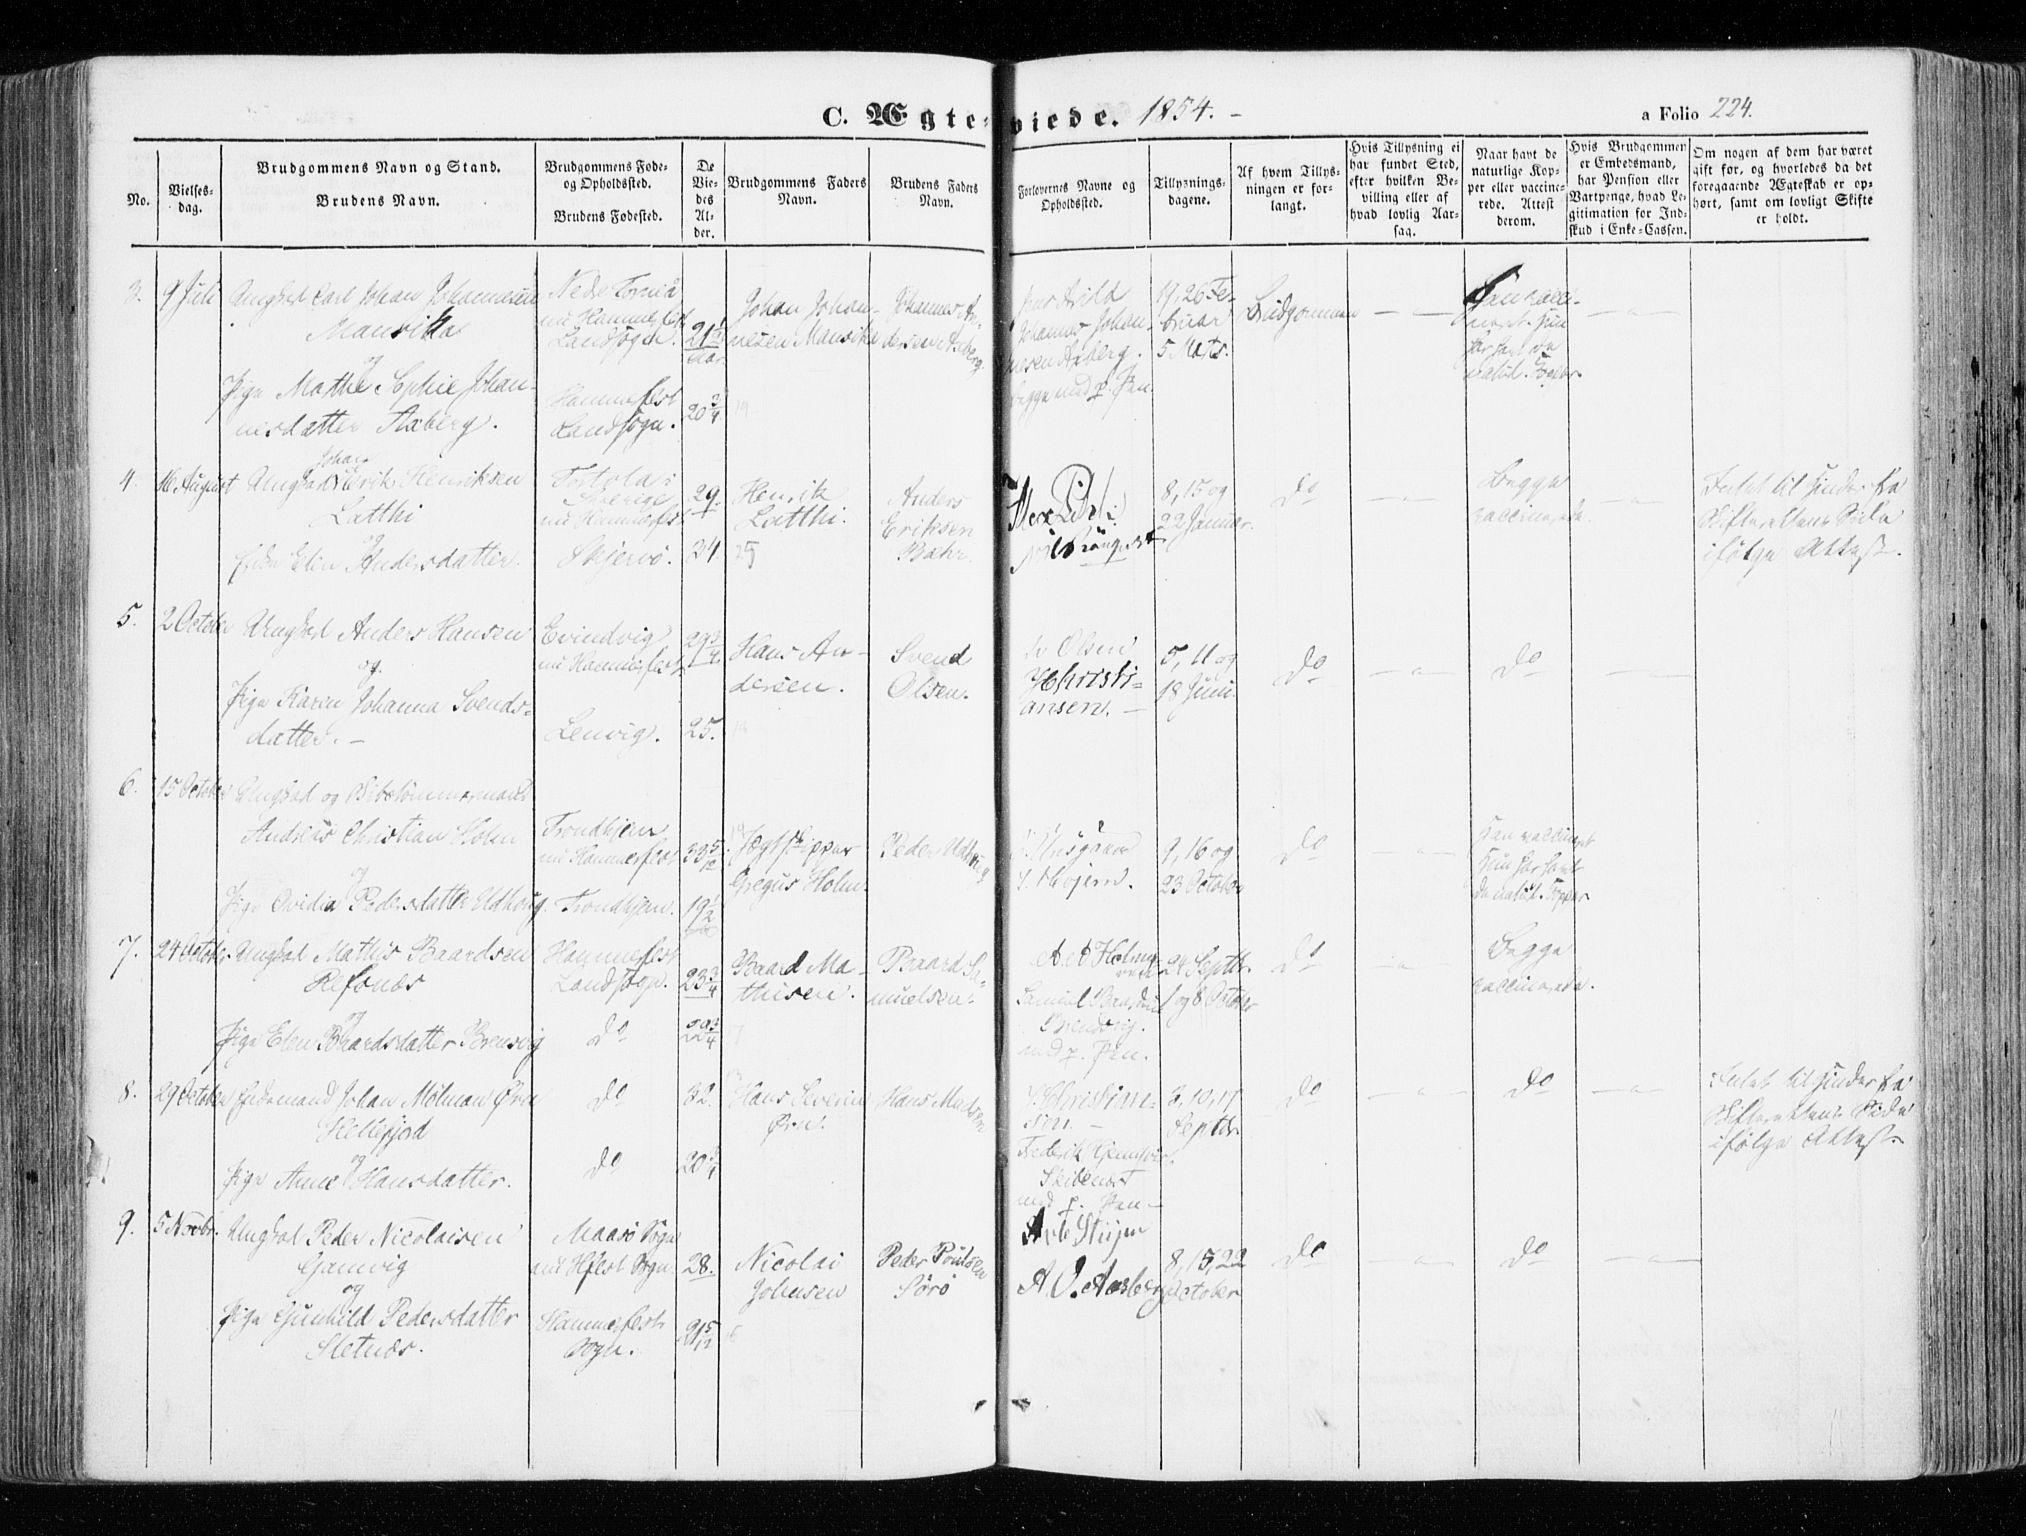 C. Ægte-viede. 1854. -
a Folio 224.
No.
Vielses-
dag.
Brudgommens Navn og Stand.
Brudens Navn.
Brudgommens Føde-
og Opholdssted.
Brudens Fødested.
De
Vie-
des
Al-
der.
Brudgommens Faders
Navn.
Brudens Faders
Navn.
Forlovernes Navne og
Opholdssted.
Tillysnings-
dagene.
Af hvem Tillys-
ningen er for-
langt.
Hvis Tillysning ei
har fundet Sted,
efter hvilken Be-
villing eller af
hvad lovlig Aar-
sag.
Naar havt de
naturlige Kop-
per eller vaccine-
rede. Attest
derom.
Hvis Brudgommen
er Embedsmand,
har Pension eller
Vartpenge, hvad Le-
gitimation for Ind-
skud i Enke-Cassen.
Om nogen af dem har været
gift før, og hvorledes da det
foregaaende Ægteskab er op-
hørt, samt om lovligt Skifte
er holdt.
3. 9 Juli
Ungkarl Carl Johan Johannesen
Mansikka
og
Pige Mathe Sophie Johan-
nesdatter Axberg.
Neder Torneå
nu Hammerfest
Landsogn.
Hammerfest
Landsogn.
21 1/2
Aar
20 3/4
Johan Johan-
nesen Mansikka
Johannes An-
dersen Axberg
Arild
Johannes Johan-
nesen Axberg.
begge med p. Pen.
19, 26 Fe-
bruar
5 Marts.
Brudgommen
4. 16 August
Ungkarl Johan Erik Henriksen
Latthi
og
Enke Elen Andersdatter.
Tortola i
Sverige
nu Hammerfest
Skjervø.
29.
34.
Henrik
Latthi.
Anders
Eriksen
Bæhr.
8, 15 og
22 Januar.
Do
Begge
vaccinerede
Intet til Hinder fra
Skifterettens Side
ifølge Attest.
5. 2 October
Ungkarl Anders Hansen
og
Pige Karen Johanna Svends-
datter. -
Evindvig
nu Hammerfest
Lenvig.
29 3/4
25.
Hans An-
dersen.
Svend
Olsen.
Olsen
HChristi-
ansen. -
5, 11 og
18 Juni.
Do
Do
6. 15 October
Ungkarl og Skibstømmermand
Andreas Christian Holm
og
Pige Ovidia Pedersdatter Udhoug.
Trondhjem
nu Hammerfest
Trondhjem.
33 5/12
19 1/2
Jægtskipper
Gregus Holm
Peder Udhoug
9, 16 og
23 October
Do
Han vaccineret
Hun har havt
de naturl. Kopper
7. 24 October
Ungkarl Mathis Baardsen
Refsnæs
og
Pige Elen Baardsdatter Brensvig
Hammerfest
Landsogn.
Do
23 3/4
22 3/4
Baard Ma-
thisen.
Baard Sa-
muelsen.
Samuel Baardsen
Brensvig.
med p. Pen.
24 Septbr.
1 og 8 October
Do
Begge
vaccinerede.
8. 29 October
Enkemand Johan Mølman Ørn
Hellefjord
og
Pige Anne Hansdatter.
Do
Do
32.
20 3/4
Hans Severin
Ørn.
Hans Madsen
Skibenæs
med p. Pen-
3, 10, 17
Septbr.
Do
Do
Intet til Hinder fra
Skifterettens Side
ifølge Attest.
9. 5 Novbr.
Ungkarl Peder Nicolaisen
Gamvig
og
Pige Gunhild Pedersdatter
Sletnæs.
Maasø Sogn
nu Hfest Sogn.
Hammerfest
Sogn.
28.
21 5/12
Nicolai
Johnsen
Peder Poulsen
Sørø
A. O. Aasberg
8, 15, 22
October
Do
Do